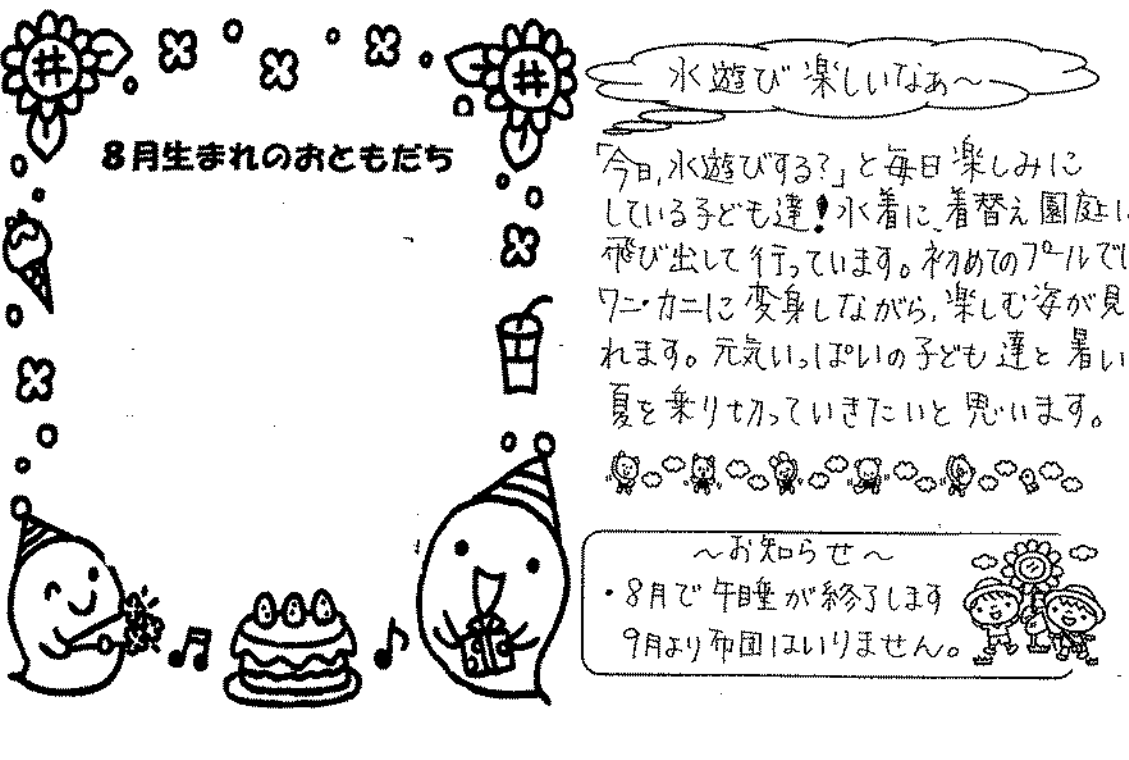 8月生まれのおともだち
水遊び楽しいなぁ〜
「今日、水遊びする?」と毎日楽しみに
している子ども達!水着に、着替え園庭に
飛び出して行っています。初めてのプールでは
ワニ・カニに変身しながら、楽しむ姿が見
れます。元気いっぱいの子ども達と暑い
夏を乗り切っていきたいと思います。
〜お知らせ〜
・8月で午睡が終了します
9月より布団はいりません。